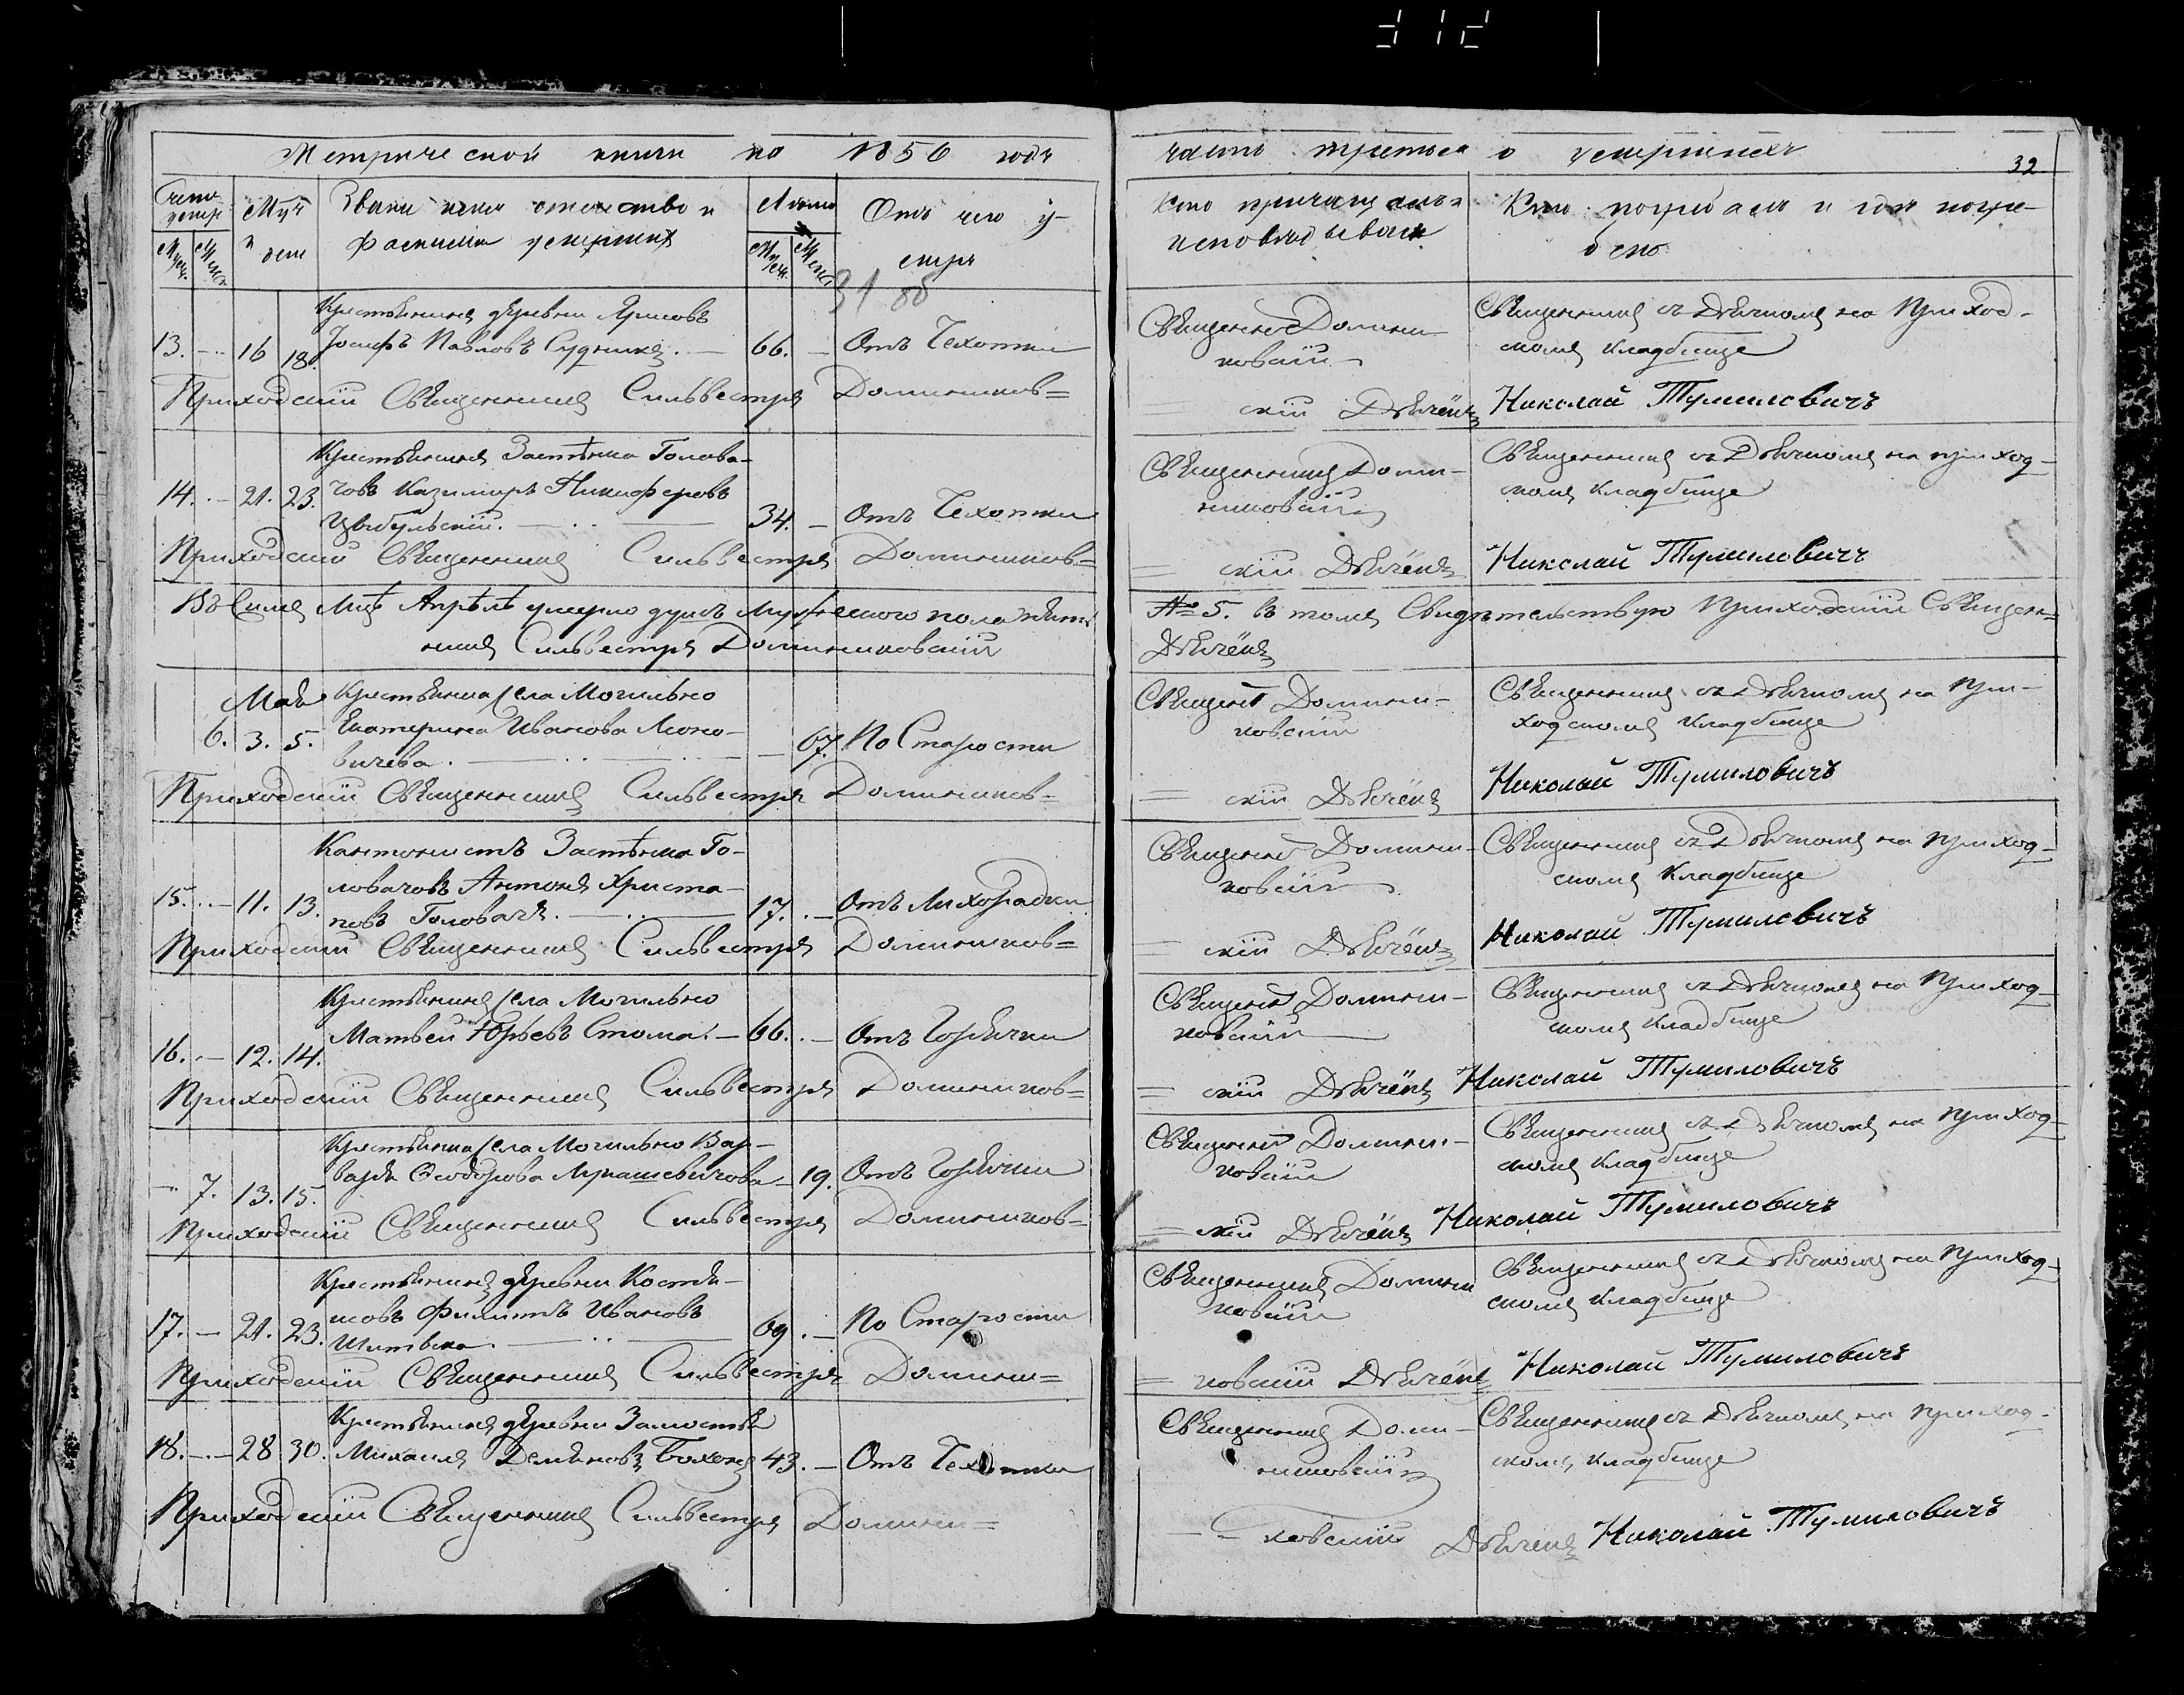 312
Метрической книги на 1856 годъ
часть третья о умершихъ
32
Счетъ умерш.
Муж. Жен.
Мцъ и день
Званіе имя отечество и
фамилія умершихъ
Лета
Муж. Жен.
Отъ чего у-
меръ
31 об
Кто причащалъ и
исповѣдывалъ
Кто погребалъ и где погре-
бено
Крестьянинъ деревни
13. — 16 18. Іосифъ Павловъ Судникъ. — 66. — Отъ Чехотки
Священикъ Домини-
ковскій
Священникъ съ Дьячкомъ на Приход-
скомъ кладбище
Приходскій Священникъ Сильвестръ Домиников=
скій Дьячёкъ Николай Тумиловичъ
Крестьянинъ Застѣнка Голова-
14. — 21. 23. човъ Казимиръ Никифоровъ
Цыбульскій. — 34. — Отъ Чехотки
Священникъ Доми-
никовскій
Священникъ съ Дьячкомъ на приход-
скомъ кладбище
Приходскій Священникъ Сильвестръ Домиников=
= скій Дьячёкъ Николай Тумиловичъ
Въ Семъ Мцѣ Апрѣлѣ умерло душъ Мужескаго пола пять
№ 5. въ томъ Свидѣтельствую Приходскій Священ=
никъ Сильвестръ Доминиковскій
Дьячёкъ
Май Крестьянка Села Могильно
6. 3. 5. Екатерина Иванова Моно-
вичева. — 67. По Старости
Священикъ Домини-
ковскій
Священникъ съ Дьячкомъ на При-
ходскомъ кладбище
Приходскій Священникъ Сильвестръ Домиников=
= скій Дьячёкъ Николай Тумиловичъ
Кантонистъ Застѣнка Го-
15. — 11. 13. ловачовъ Антонъ Христа-
новъ Головачъ. — 17. — Отъ Лихорадки
Священикъ Домини-
ковскій
Священникъ съ Дьячкомъ на приход-
скомъ Кладбище
Приходскій Священникъ Сильвестръ Домиников=
= скій Дьячёкъ Николай Тумиловичъ
Крестьянинъ Села Могильно
16. — 12. 14. Матвей Юрьевъ Стома. — 66. — Отъ Горячки
Священикъ Домини-
ковскій
Священникъ съ Дьячкомъ на Приход-
скомъ Кладбище
Приходскій Священникъ Сильвестръ Домиников=
= скій Дьячёкъ Николай Тумиловичъ
Крестьянка Села Могильно Вар-
— 7. 13. 15. вара Феодорова — 19. Отъ Горячки
Священикъ Домини-
ковскій
Священникъ съ Дьячкомъ на Приход-
скомъ кладбище
Приходскій Священникъ Сильвестръ Домиников=
= скій Дьячёкъ Николай Тумиловичъ
Крестьянинъ деревни Костѣ-
17. — 21. 23. шовъ Филиппъ Ивановъ
— 69. — По Старости
Священникъ Домини
ковскій
Священникъ съ Дьячкомъ на Приход-
скомъ кладбище
Приходскій Священникъ Сильвестръ Домини=
= ковскій Дьячёкъ Николай Тумиловичъ
Крестьянинъ деревни Замостья
18. — 28 30. Михаилъ Демьяновъ Боханъ 43. — Отъ Чехотки
Священникъ Доми-
никовскій
Священникъ съ Дьячкомъ на Приход-
скомъ кладбище
Приходскій Священникъ Сильвестръ Домини=
ковскій Дьячекъ Николай Тумиловичъ